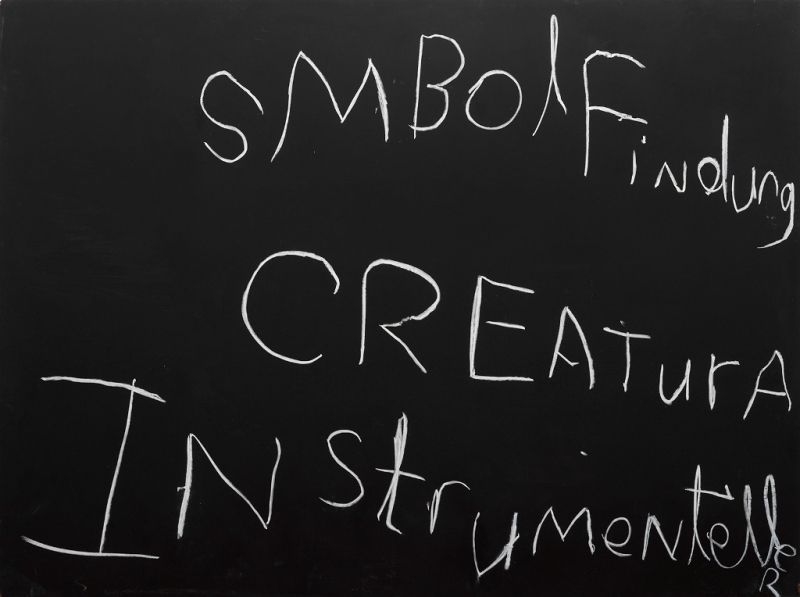 SMBOlFindung
CREATurA
INstrumenteller